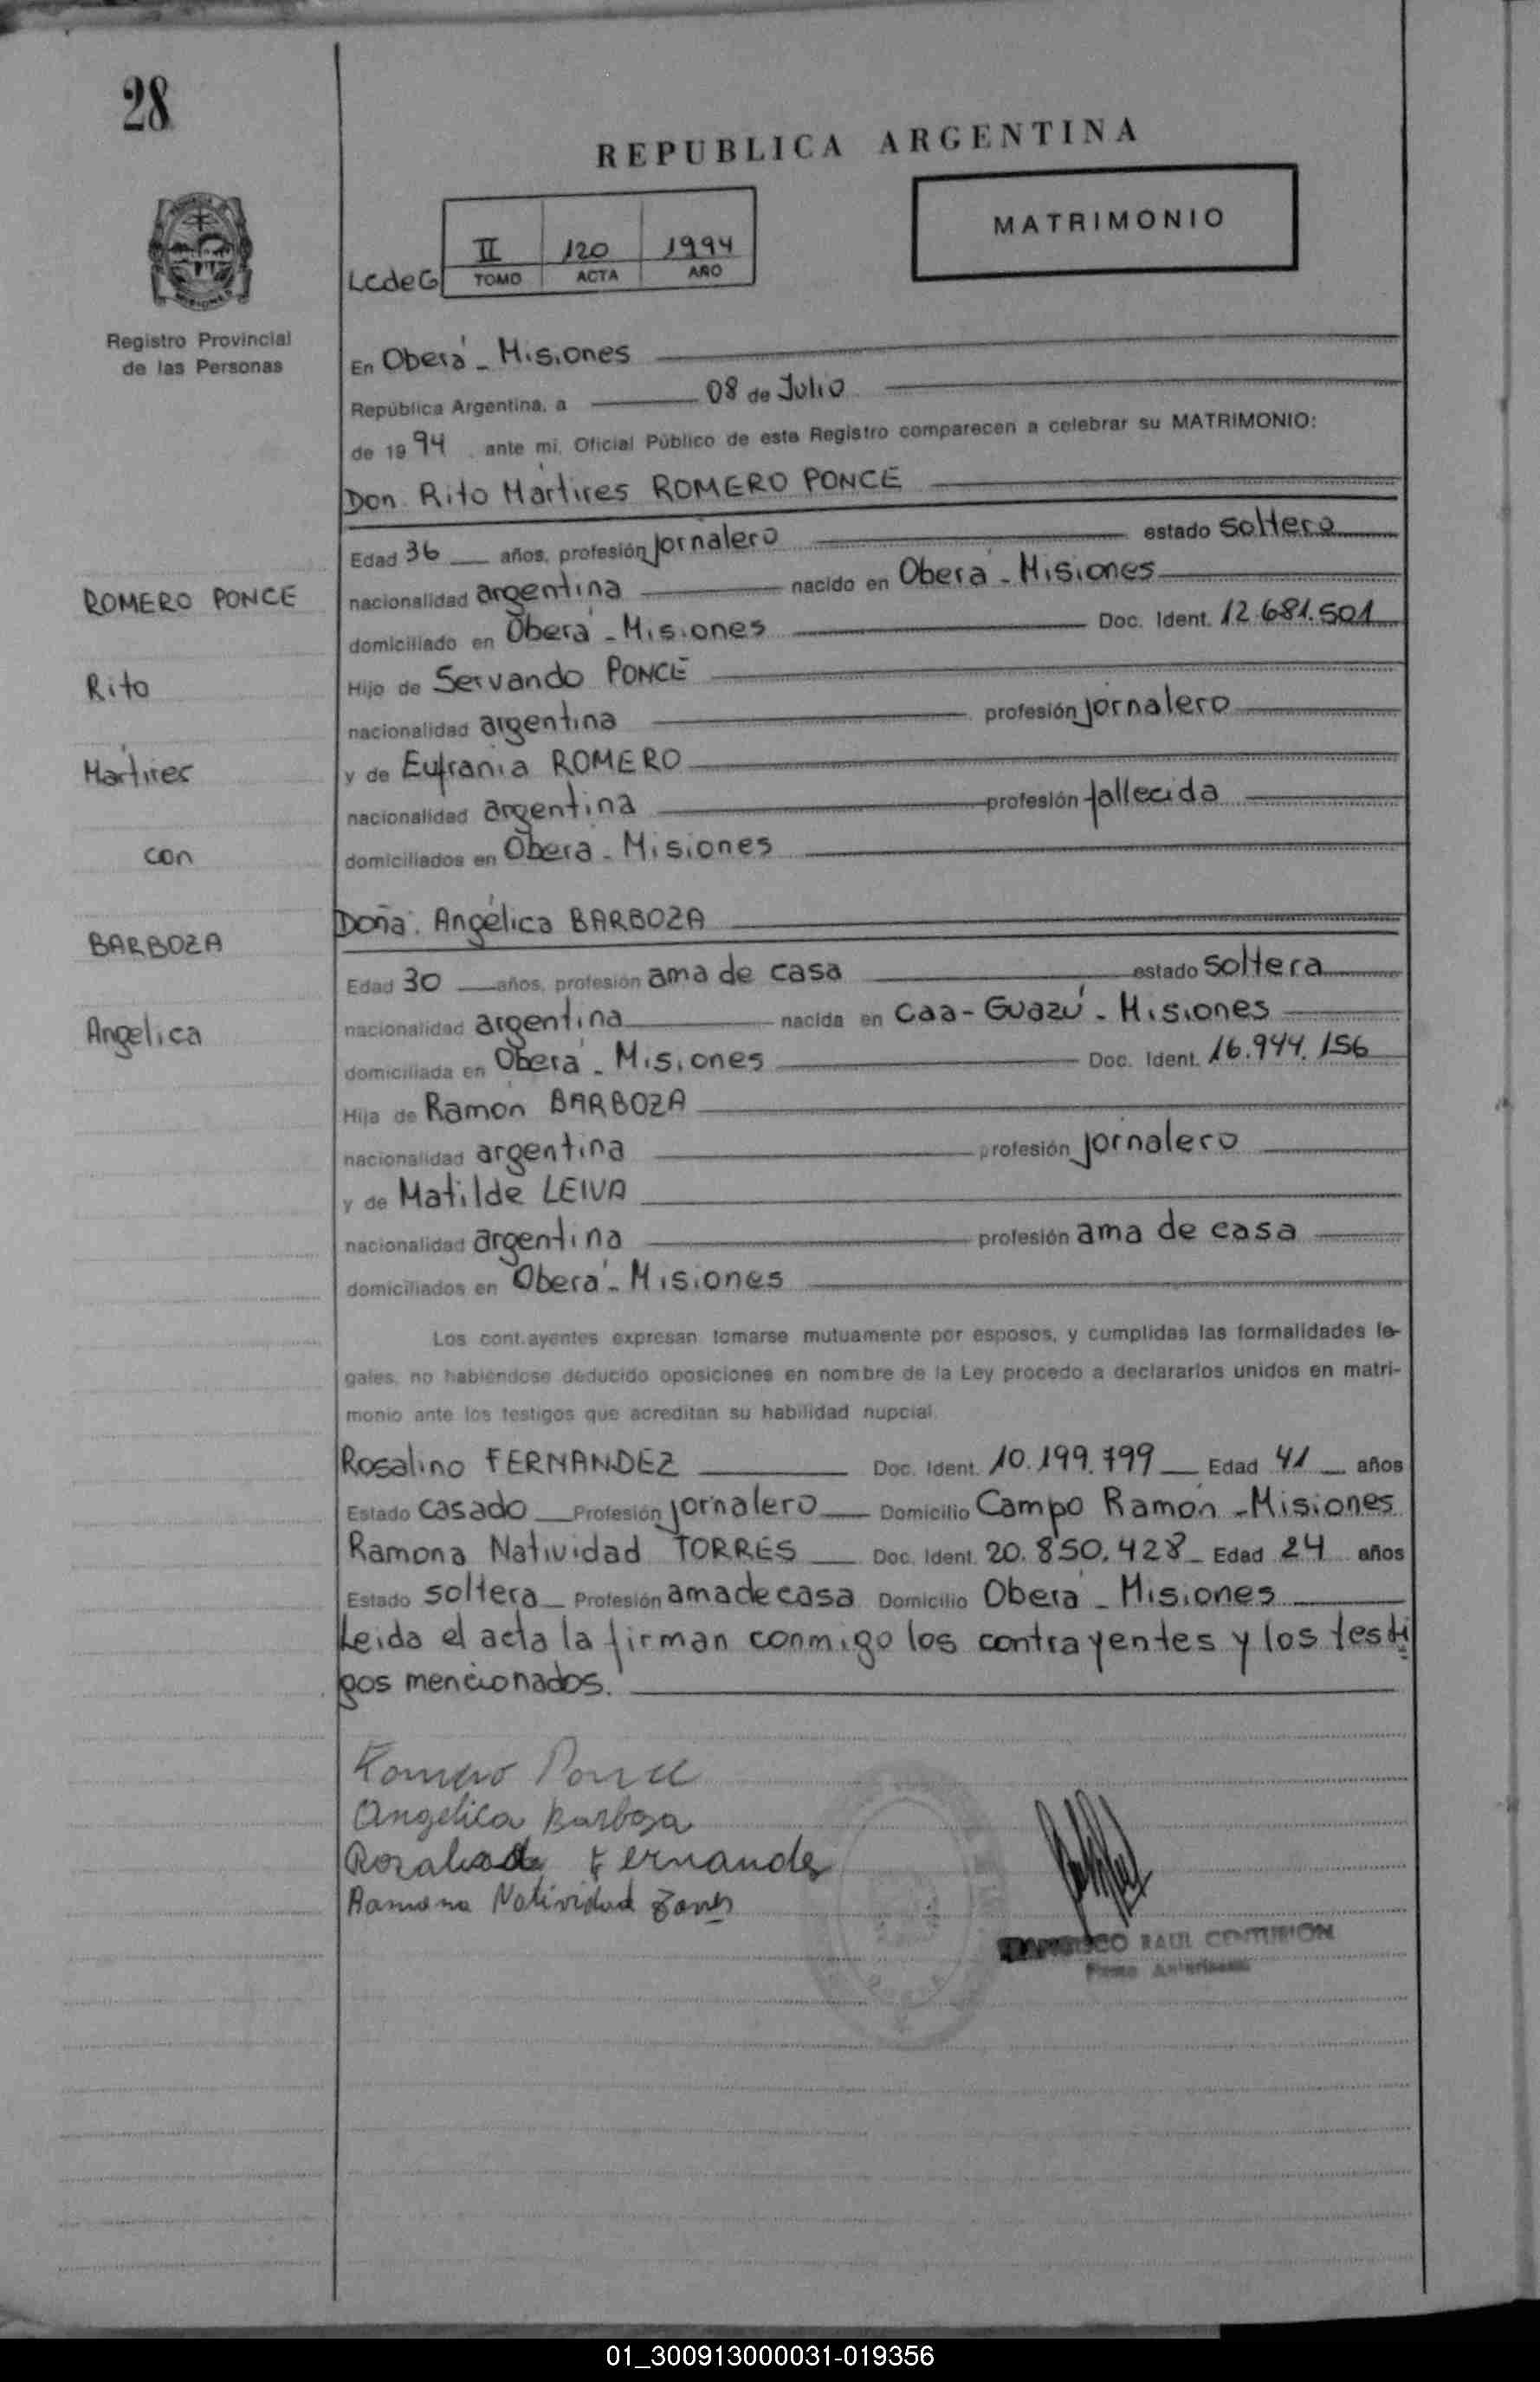 28
REPUBLICA ARGENTINA
MATRIMONIO
II 120 1994
LcdeG TOMO ACTA AÑO
Registro Provincial
de las Personas
En Oberá - Misiones
República Argentina, a 08 de Julio
de 1994, ante mi, Oficial Público de este Registro comparecen a celebrar su MATRIMONIO:
Don. Rito Mártires ROMERO PONCE
Edad 36 años, profesión jornalero estado soltero
nacionalidad argentina nacido en Oberá - Misiones
domiciliado en Oberá - Misiones Doc. Ident. 12.681.501
Hijo de Servando PONCE
nacionalidad argentina profesión jornalero
y de Eufrania ROMERO
nacionalidad argentina profesión fallecida
domiciliados en Oberá - Misiones
ROMERO PONCE
Rito
Mártires
con
BARBOZA
Angélica
Doña: Angélica BARBOZA
Edad 30 años, profesión ama de casa estado soltera
nacionalidad argentina nacida en Caa-Guazú - Misiones
domiciliada en Oberá - Misiones Doc. Ident. 16.944.156
Hija de Ramón BARBOZA
nacionalidad argentina profesión jornalero
y de Matilde LEIVA
nacionalidad argentina profesión ama de casa
domiciliados en Oberá - Misiones
Los contrayentes expresan tomarse mutuamente por esposos, y cumplidas las formalidades le-
gales, no habiéndose deducido oposiciones en nombre de la Ley procedo a declararlos unidos en matri-
monio ante los testigos que acreditan su habilidad nupcial.
Rosalino FERNANDEZ Doc. Ident. 10.199.799 Edad 41 años
Estado casado Profesión jornalero Domicilio Campo Ramón - Misiones
Ramona Natividad TORRES Doc. Ident. 20.850.428 Edad 24 años
Estado soltera Profesión ama de casa Domicilio Oberá - Misiones
Leida el acta la firman conmigo los contrayentes y los testi
gos mencionados.
Romero Ponce
Angelica Barboza
Fernandez
Ramona Natividad Torres
RAUL CENTURION
01_300913000031-019356